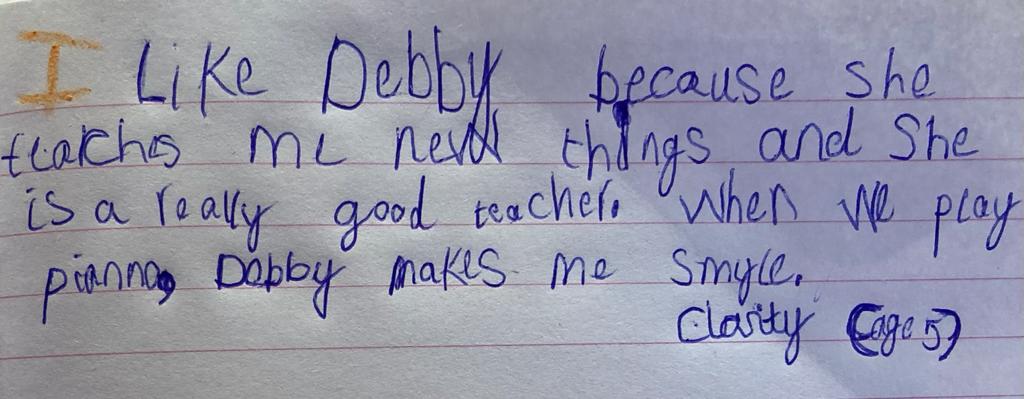 I Like Debby because she
teaches me new things and She
is a really good teacher. When we play
pianno, Debby makes me smyle.
Clarity (age 5)